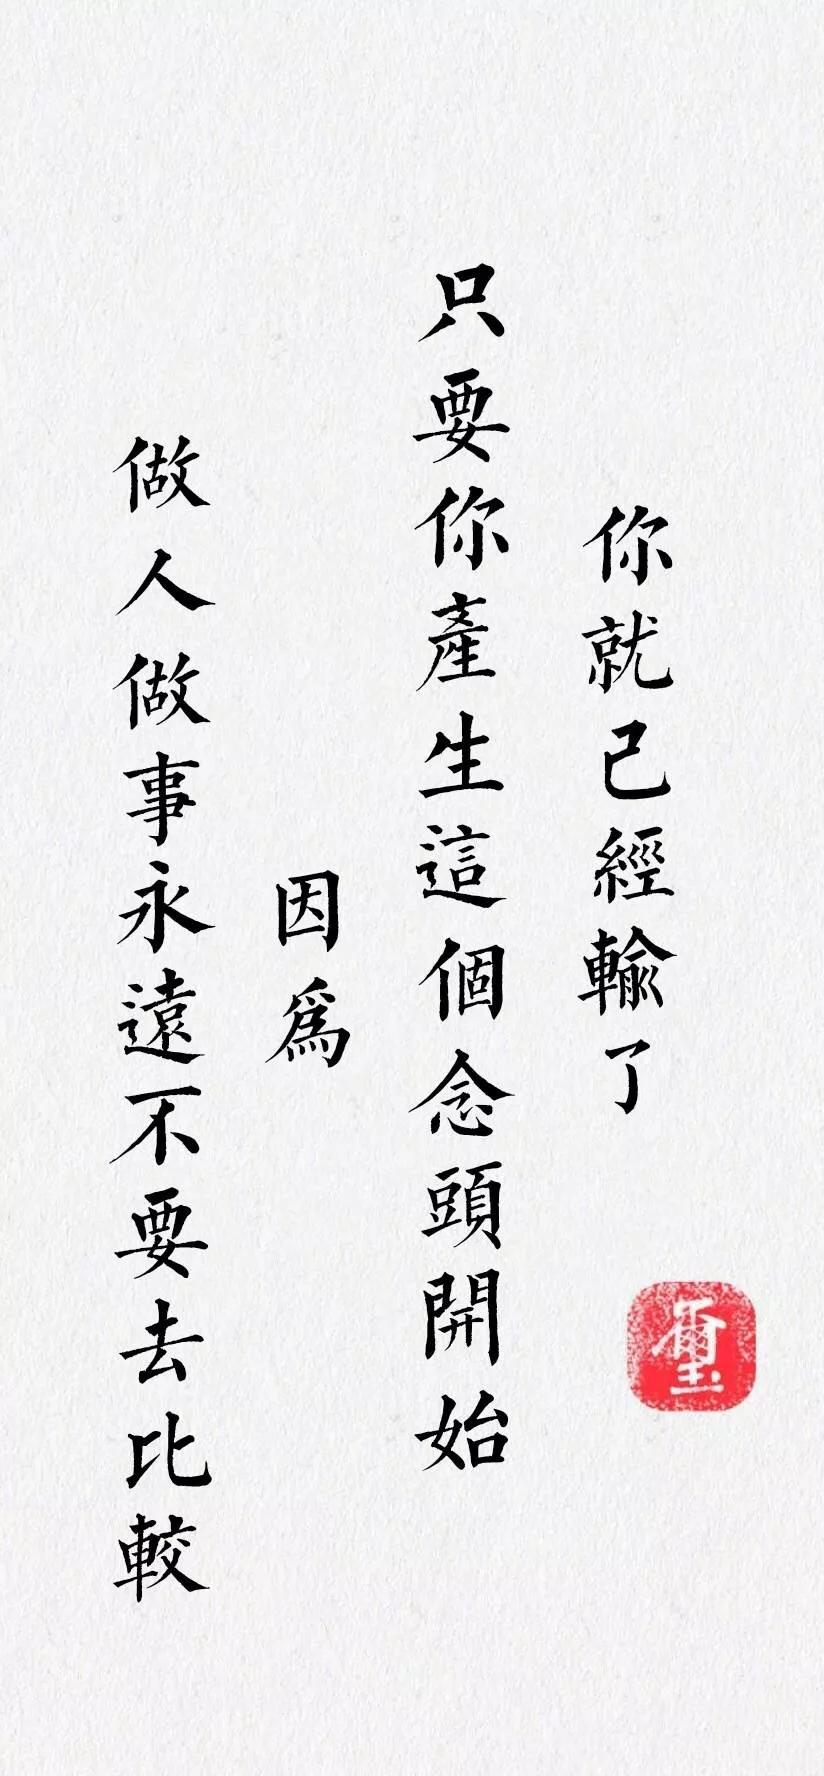 做人做事永遠不要去比較
因爲
只要你產生這個念頭開始
你就已經輸了
璽